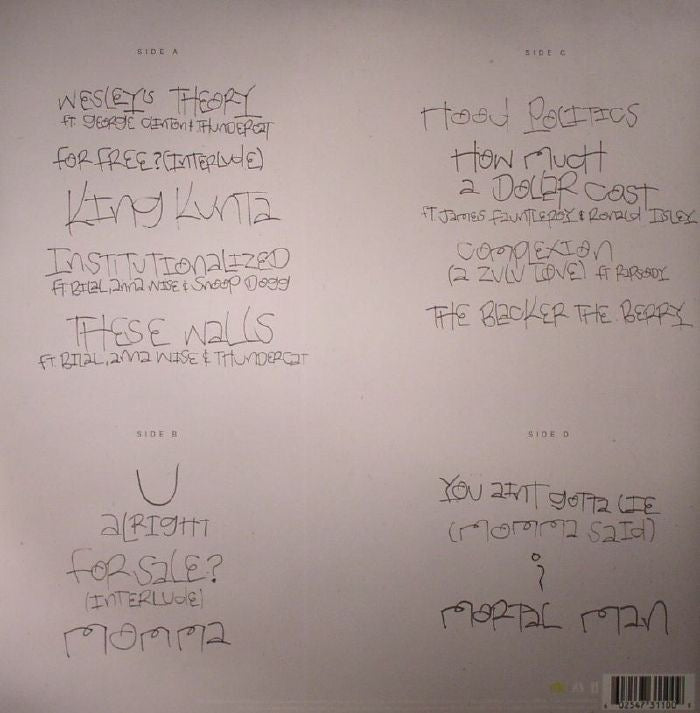 SIDE A
WESLEY'S THEORY
FT GEORGE CLINTON & THUNDERCAT
FOR FREE? (INTERLUDE)
KING KUNTA
INSTITUTIONALIZED
FT BILAL, ANNA WISE & SNOOP DOGG
THESE WALLS
FT. BILAL, ANNA WISE & THUNDERCAT
SIDE B
U
ALRIGHT
FOR SALE?
(INTERLUDE)
MOMMA
SIDE C
HOOD POLITICS
HOW MUCH
A DOLLAR COST
FT. JAMES FAUNTLEROY & RONALD ISLEY
COMPLEXION
(A ZULU LOVE) FT RAPSODY
THE BLACKER THE BERRY
SIDE D
YOU AINT GOTTA LIE
(MOMMA SAID)
i
MORTAL MAN
6 02547 31100